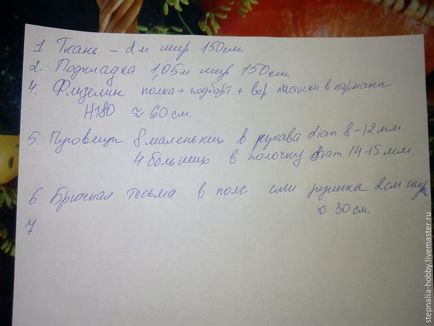 1. Ткань – 2м шир 150см.
2. Подкладка 1,05м шир 150см.
4. Флизелин полка + подборт + вор листочки в карман
Н180 ≈ 60см.
5. Пуговицы 8 маленьких в рукава diam 8-12мм
4 больших в полочку diam 14-15мм.
6 Брючная тесьма в пояс или резинка 2см шир
≈ 30см.
7.
stepnalia-hobby.livemaster.ru